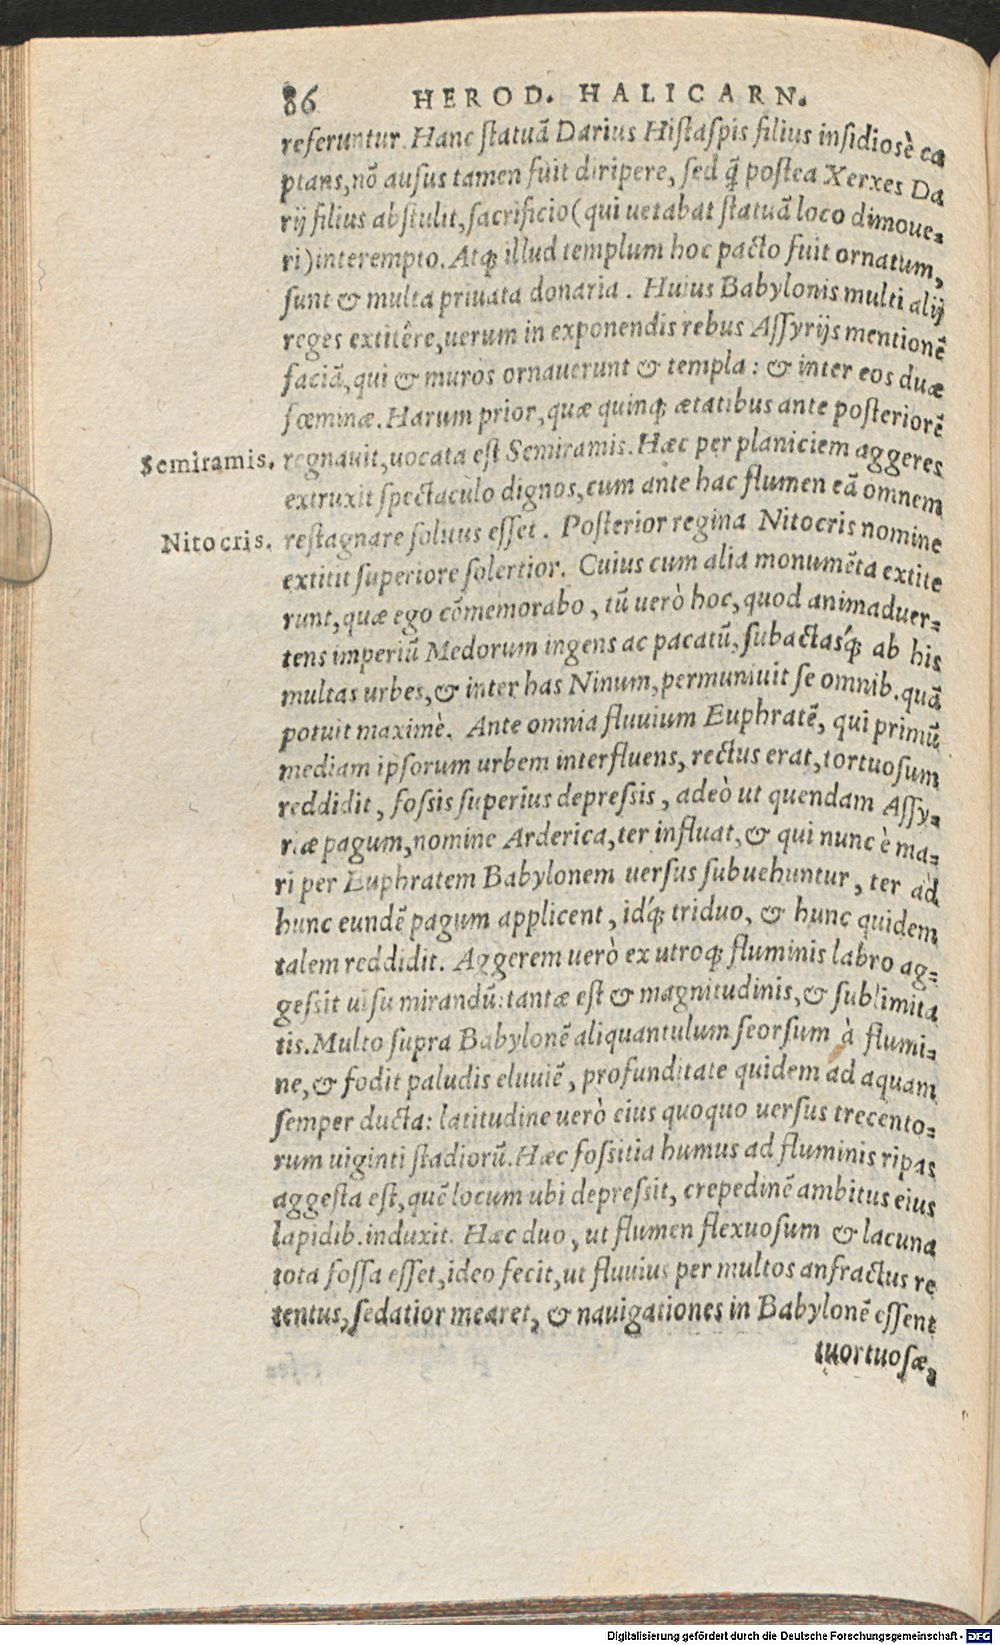 86 HEROD. HALICARN.
referuntur. Hanc ſtatuã Darius Hiſtaſpis filius inſidioſè ca
ptans, nõ auſus tamen fuit diripere, ſed q̃ poſtea Xerxes Da
rij filius abſtulit, ſacrificio (qui uetabat ſtatuã loco dimoue-
ri) interempto. Atq; illud templum hoc pacto fuit ornatum,
ſunt & multa priuata donaria. Huius Babylonis multi alij
reges extitêre, uerum in exponendis rebus Aſſyrijs mentionẽ
faciã, qui & muros ornauerunt & templa: & inter eos duæ
fœminæ. Harum prior, quæ quinq; ætatibus ante poſteriorẽ
Semiramis. regnauit, uocata eſt Semiramis. Hæc per planiciem aggeres
extruxit ſpectaculo dignos, cum ante hac flumen eã omnem
Nitocris. reſtagnare ſolitus eſſet. Poſterior regina Nitocris nomine
extitit ſuperiore ſolertior. Cuius cum alia monumẽta extite
runt, quæ ego cõmemorabo, tũ uerò hoc, quod animaduer-
tens imperiũ Medorum ingens ac pacatũ, ſubactasq́; ab his
multas urbes, & inter has Ninum, permuniuit ſe omnib. quã
potuit maximè. Ante omnia fluuium Euphratẽ, qui primũ
mediam ipſorum urbem interfluens, rectus erat, tortuoſum
reddidit, foſsis ſuperius depreſsis, adeò ut quendam Aſſy-
riæ pagum, nomine Arderica, ter influat, & qui nunc è ma-
ri per Euphratem Babylonem uerſus ſubuehuntur, ter ad
hunc eundẽ pagum applicent, idq́; triduo, & hunc quidem
talem reddidit. Aggerem uerò ex utroq; fluminis labro ag-
geſsit uiſu mirandũ: tantæ eſt & magnitudinis, & ſublimita
tis. Multo ſupra Babylonẽ aliquantulum ſeorſum à flumi-
ne, & fodit paludis eluuiẽ, profunditate quidem ad aquam
ſemper ducta: latitudine uerò eius quoquo uerſus trecento-
rum uiginti ſtadiorũ. Hæc foſsitia humus ad fluminis ripas
aggeſta eſt, quẽ locum ubi depreſsit, crepedinẽ ambitus eius
lapidib. induxit. Hæc duo, ut flumen flexuoſum & lacuna
tota foſſa eſſet, ideo fecit, ut fluuius per multos anfractus re
tentus, ſedatior mearet, & nauigationes in Babylonẽ eſſent
tuortuoſæ,
Digitalisierung gefördert durch die Deutsche Forschungsgemeinschaft - DFG